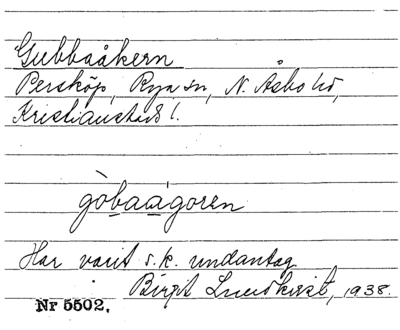 Gubbaåkern
Persköp, Rya sn, N. Åsbo hd,
Kristianstads l.
gòbaágoren
Har varit s.k. undantag
Birgit Lundkvist, 1938.
Nr 5502.